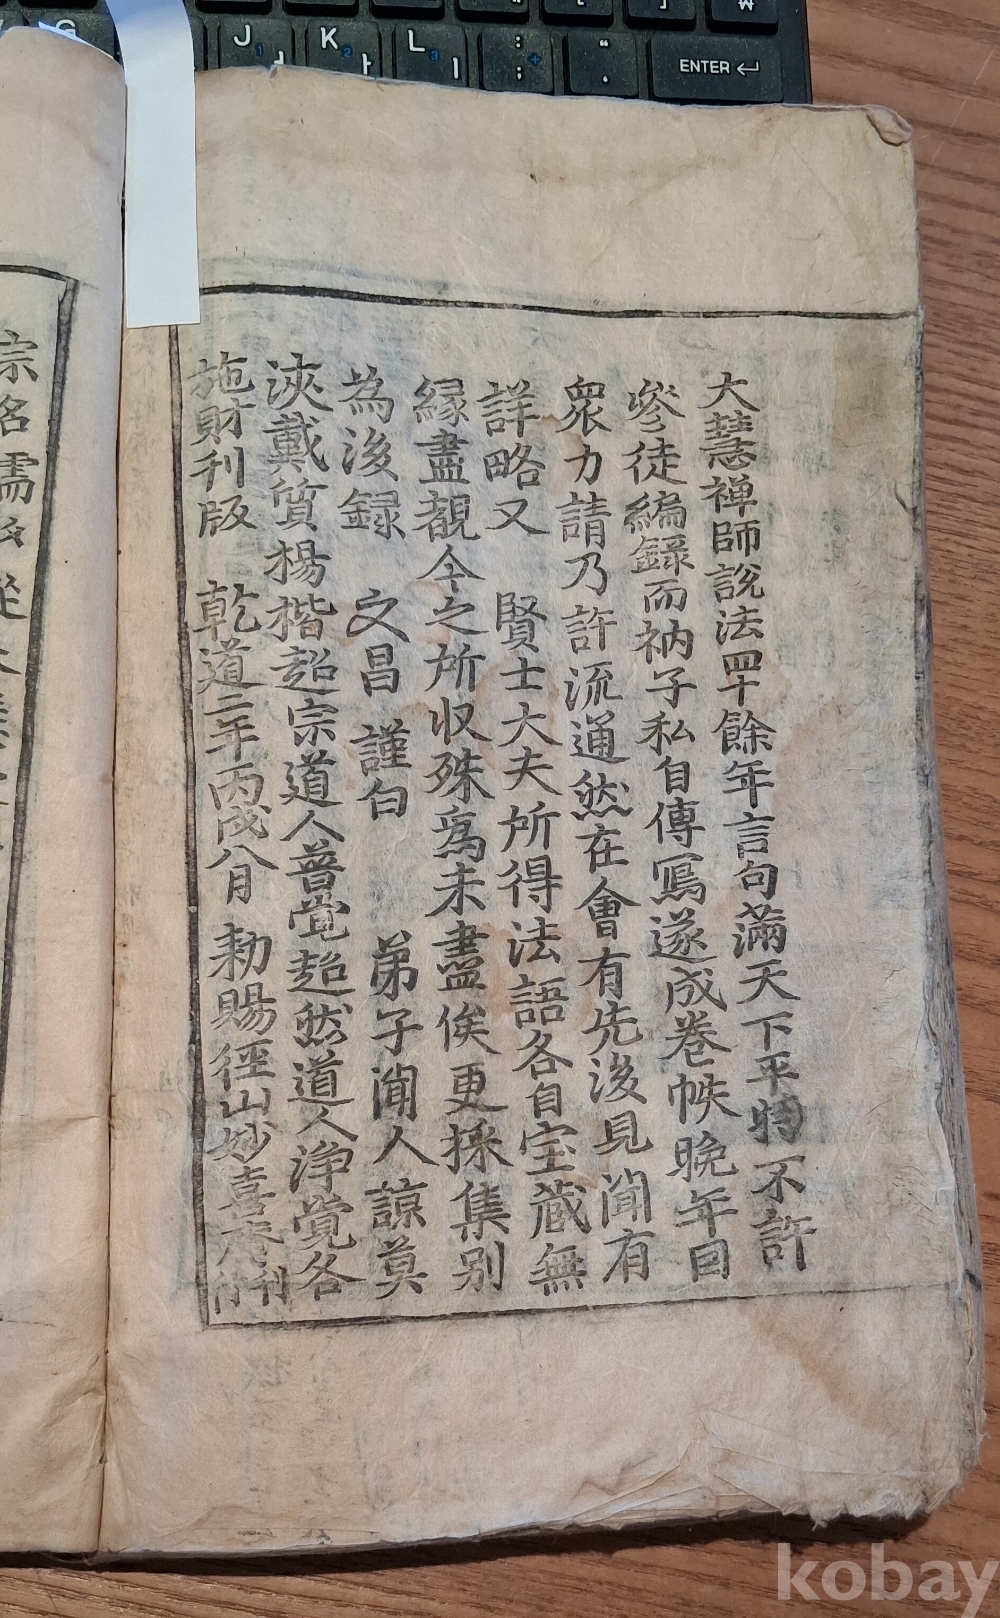 大慧禅師說法四十餘年言句滿天下平時不許
叅徒編錄而衲子私自傳寫遂成卷帙晚年因
衆力請乃許流通然在會有先後見聞有
詳略又 賢士大夫所得法語各自宝藏無
縁盡覩今之所收殊爲未盡俟更採集别
為後録 文昌 謹白 弟子聞人諒莫
浹戴質楊楷超宗道人普觉超然道人浄覺各
施財刊版 乾道二年丙戌八月 勑賜徑山妙喜庵刊行
宗名儒 從
J
K
L
ENTER
kobay